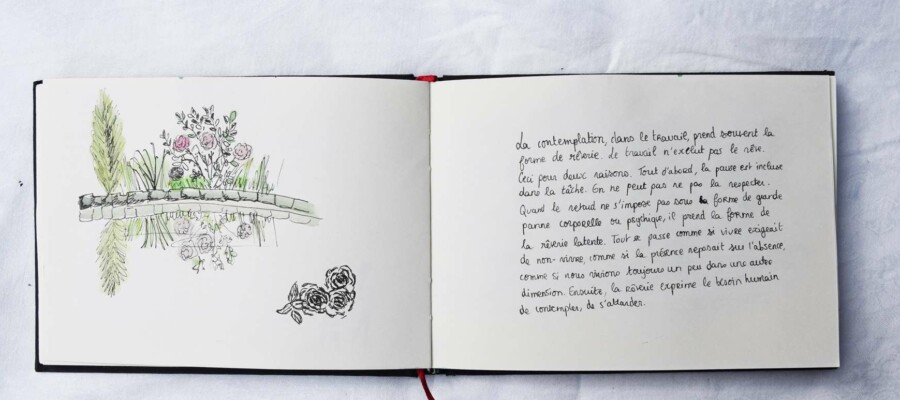 La contemplation, dans le travail, prend souvent la
forme de rêverie. Le travail n'exclut pas le rêve.
Ceci pour deux raisons. Tout d'abord, la pause est incluse
dans la tâche. On ne peut pas ne pas la respecter.
Quand le retard ne s'impose pas sous la forme de grande
panne corporelle ou psychique, il prend la forme de
la rêverie latente. Tout se passe comme si vivre exigeait
de non-vivre, comme si la présence reposait sur l'absence,
comme si nous vivions toujours un peu dans une autre
dimension. Ensuite, la rêverie exprime le besoin humain
de contempler, de s'attarder.